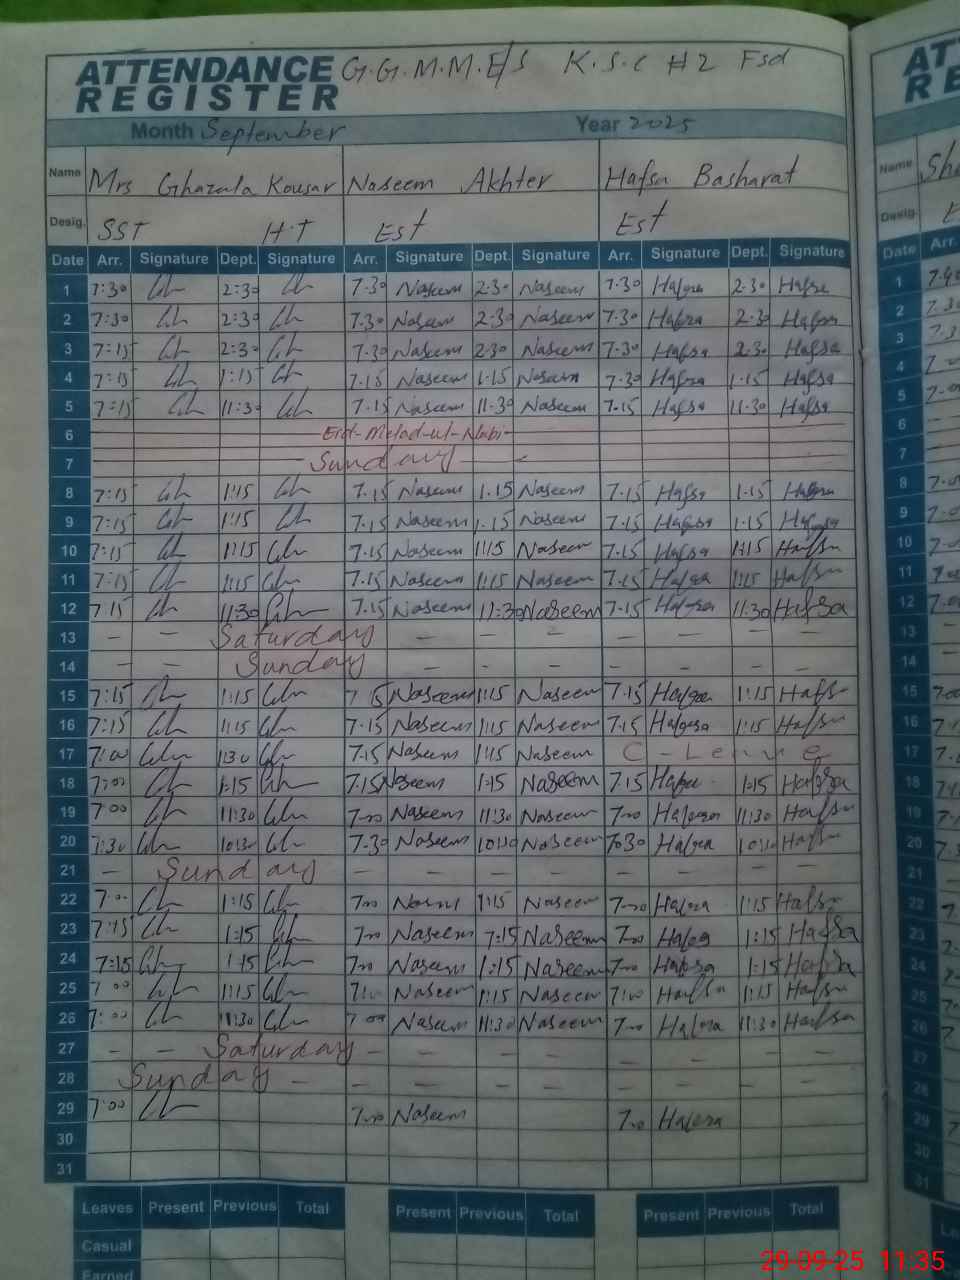 ATTENDANCE REGISTER G.G.M.M.E/S K.S.C #2 Fsd
Month September Year 2025
Name Mrs Ghazala Kousar Naseem Akhter Hafsa Basharat
Desig. SST H.T Est Est
Date Arr. Signature Dept. Signature Arr. Signature Dept. Signature Arr. Signature Dept. Signature
1 7:30 2:30 7.30 Naseem 2.30 Naseem 7.30 Hafsa 2.30 Hafsa
2 7:30 2:30 7.30 Naseem 2.30 Naseem 7.30 Hafsa 2.30 Hafsa
3 7:15 2:30 7.30 Naseem 2.30 Naseem 7-30 Hafsa 2.30 Hafsa
4 7:15 1:15 7.15 Naseem 1.15 Naseem 7.30 Hafsa 1.15 Hafsa
5 7:15 11:30 7.15 Naseem 11.30 Naseem 7.15 Hafsa 11.30 Hafsa
6 Eid-Melad-ul-Nabi
7 Sunday
8 7:15 1:15 7.15 Naseem 1.15 Naseem 7.15 Hafsa 1.15 Hafsa
9 7:15 1:15 7.15 Naseem 1.15 Naseem 7.15 Hafsa 1.15 Hafsa
10 7:15 1:15 7.15 Naseem 1:15 Naseem 7.15 Hafsa 1:15 Hafsa
11 7:15 1:15 7.15 Naseem 1:15 Naseem 7.15 Hafsa 1:15 Hafsa
12 7:15 11:30 7.15 Naseem 11:30 Naseem 7.15 Hafsa 11:30 Hafsa
13 – – Saturday – – – – – – – –
14 – – Sunday – – – – – – –
15 7:15 1:15 7 15 Naseem 1:15 Naseem 7.15 Hafsa 1:15 Hafsa
16 7:15 1:15 7.15 Naseem 1:15 Naseem 7.15 Hafsa 1:15 Hafsa
17 7:00 1:30 7.15 Naseem 1:15 Naseem C-Leave
18 7:00 1:15 7.15 Naseem 1:15 Naseem 7.15 Hafsa 1:15 Hafsa
19 7 00 11:30 7-00 Naseem 11:30 Naseem 7-00 Hafsa 11:30 Hafsa
20 7:30 10:30 7.30 Naseem 10:30 Naseem 7:30 Hafsa 10:30 Hafsa
21 – Sunday – – – – – – – –
22 7:00 1:15 7-00 Naseem 1:15 Naseem 7-00 Hafsa 1:15 Hafsa
23 7:15 1:15 7-00 Naseem 7:15 Naseem 7-00 Hafsa 1:15 Hafsa
24 7:15 1:15 7-00 Naseem 1:15 Naseem 7-00 Hafsa 1:15 Hafsa
25 7:00 1:15 7:00 Naseem 1:15 Naseem 7:00 Hafsa 1:15 Hafsa
26 7:00 11:30 7:00 Naseem 11:30 Naseem 7-00 Hafsa 11:30 Hafsa
27 – – Saturday – – – – – – – –
28 Sunday – – – – – – – – –
29 7:00 7-00 Naseem 7-00 Hafsa
30
31
Leaves Present Previous Total Present Previous Total Present Previous Total
Casual
Earned
29-09-25 11:35